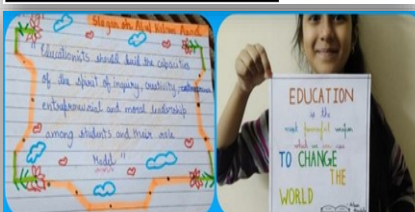 Slogan on Abul Kalam Azad
"Educationists should buil the capacities
of the spirit of inquiry, creativity,
entrepreneurial and moral leadership
among students and their role
Model"
EDUCATION
is the
most powerful weapon
which we can use
TO CHANGE
THE
WORLD